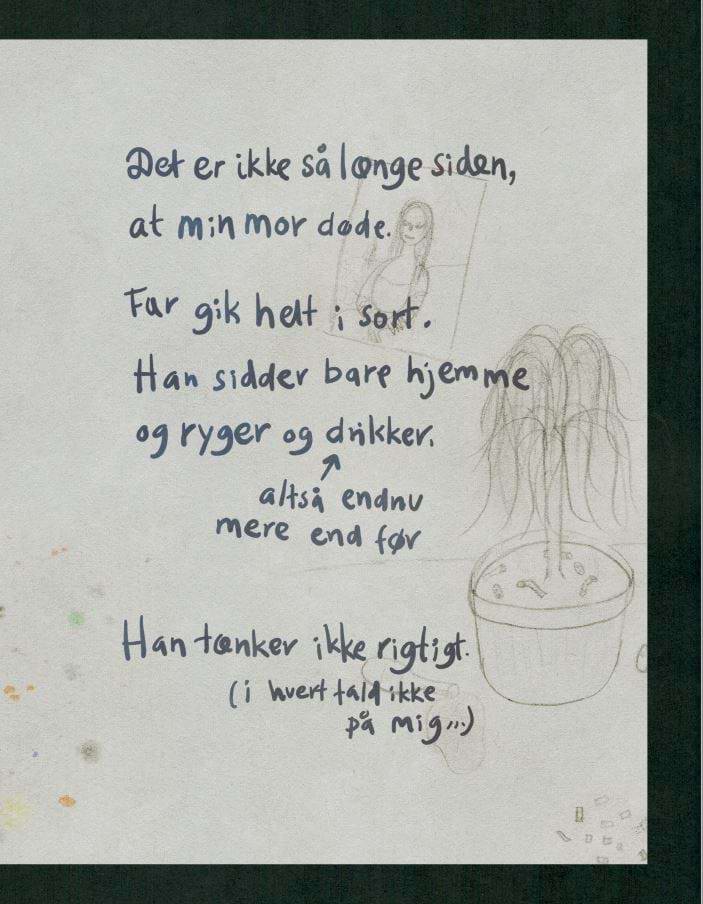 Det er ikke så længe siden,
at min mor døde.
Far gik helt i sort.
Han sidder bare hjemme
og ryger og drikker.
altså endnu
mere end før
Han tænker ikke rigtigt.
(i hvert fald ikke
på mig...)